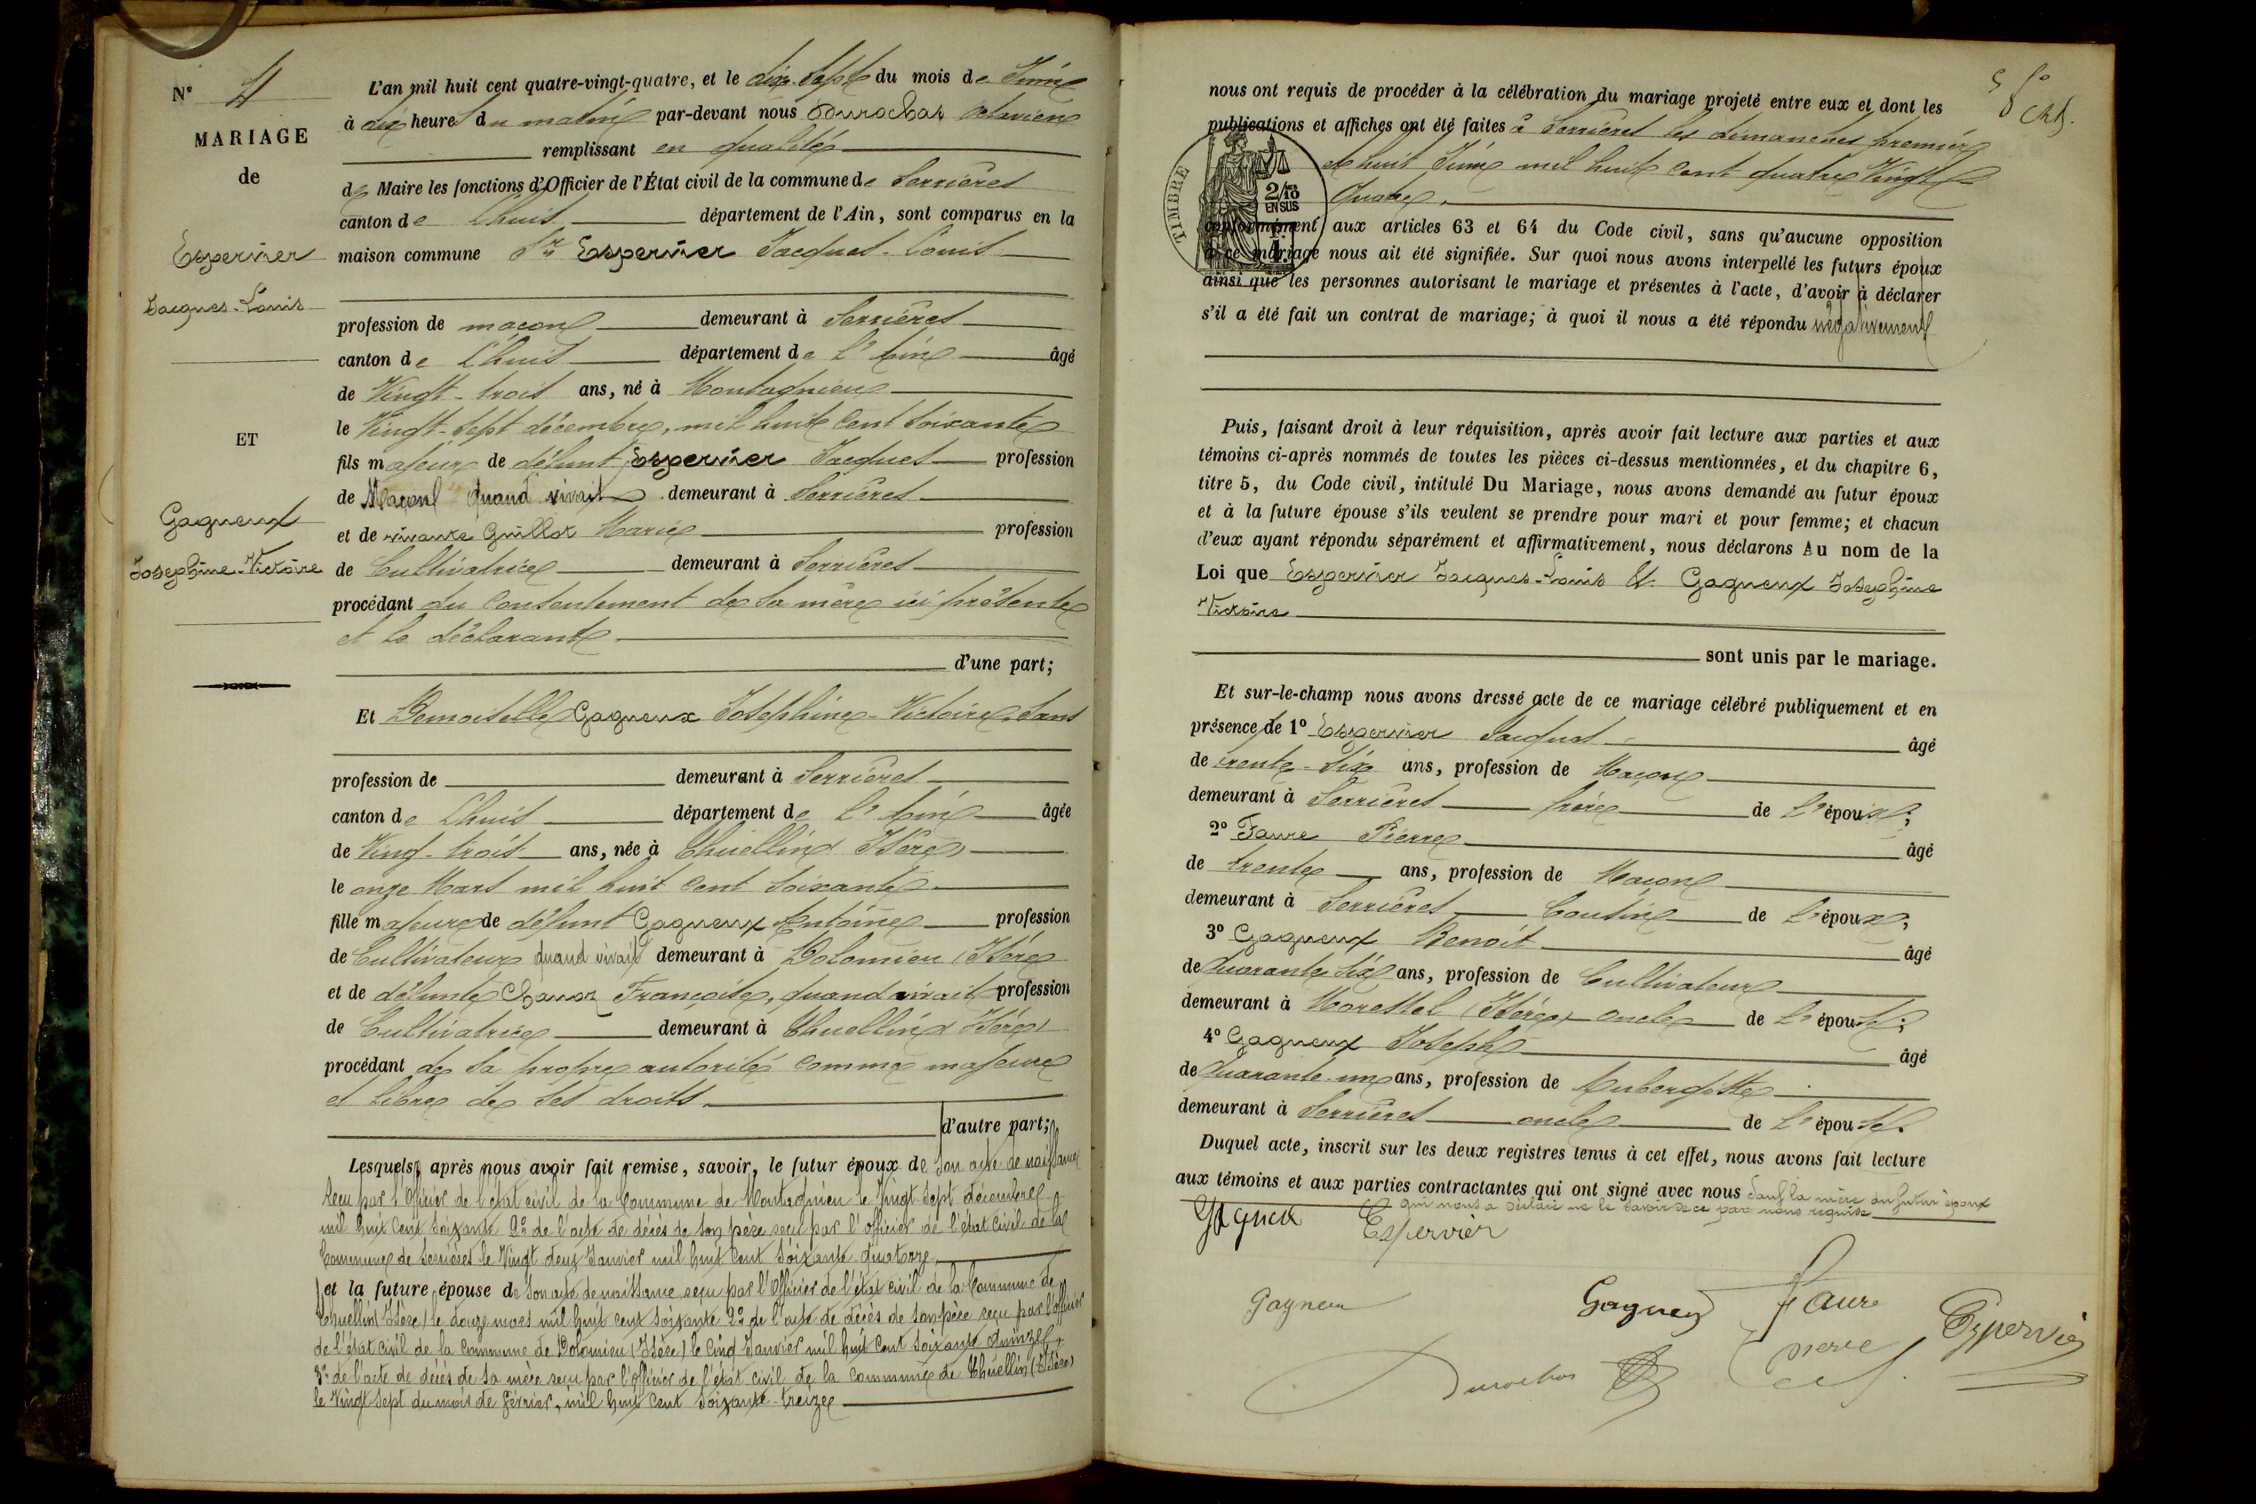 N° 4
MARIAGE
de
Espervier
Jacques-Louis
ET
Gagneux
Josephine-Victoire
L'an mil huit cent quatre-vingt-quatre, et le dix-sept du mois de Juin
à dix heures du matin par-devant nous Durochat Octavien
remplissant en qualité
de Maire les fonctions d'Officier de l'État civil de la commune de Serrières
canton de Lhuis département de l'Ain, sont comparus en la
maison commune Sr Espervier Jacques-Louis
profession de maçon demeurant à Serrières
canton de Lhuis département de L'Ain âgé
de Vingt-trois ans, né à Montagnieu
le Vingt-Sept décembre, mil huit cent soixante
fils majeur de défunt Espervier Jacques profession
de Maçon quand vivait demeurant à Serrières
et de vivante Guillot Marie profession
de Cultivatrice demeurant à Serrières
procédant du consentement de sa mère ici présente
et le déclarant
d'une part;
Et Demoiselle Gagneux Joséphine-Victoire, Sans
profession de demeurant à Serrières
canton de Lhuis département de L'Ain âgée
de Vingt-trois ans, née à Thuellin (Isère)
le onze Mars mil huit cent soixante
fille majeure de défunt Gagneux Antoine profession
de Cultivateur quand vivait demeurant à Dolomieu (Isère)
et de défunte Françoise, quand vivait profession
de Cultivatrice demeurant à Thuellin (Isère)
procédant de sa propre autorité comme majeure
et libre de ses droits
d'autre part;
Lesquels, après nous avoir fait remise, savoir, le futur époux de son acte de naissance
reçu par l'Officier de l'état civil de la Commune de Montagnieu le Vingt Sept décembre
mil huit cent soixante 2° de l'acte de décès de son père reçu par l'officier de l'état civil de la
Commune de Serrières le Vingt deux Janvier mil huit cent soixante quatorze
et la future épouse de son acte de naissance reçu par l'Officier de l'état civil de la Commune de
Thuellin (Isère) le douze mars mil huit cent soixante 2° de l'acte de décès de son père reçu par l'officier
de l'état civil de la commune de Dolomieu (Isère) le cinq Janvier mil huit cent soixante quinze
3° de l'acte de décès de sa mère reçu par l'officier de l'état civil de la commune de Thuellin (Isère)
le Vingt Sept du mois de février, mil huit cent soixante-treize
nous ont requis de procéder à la célébration du mariage projeté entre eux et dont les
publications et affiches ont été faites à Serrières les dimanches premier
et huit Juin mil huit cent quatre Vingt
Quatre.
TIMBRE
2/10
EN SUS
conformément aux articles 63 et 64 du Code civil, sans qu'aucune opposition
à ce mariage nous ait été signifiée. Sur quoi nous avons interpellé les futurs époux
ainsi que les personnes autorisant le mariage et présentes à l'acte, d'avoir à déclarer
s'il a été fait un contrat de mariage; à quoi il nous a été répondu négativement
Puis, faisant droit à leur réquisition, après avoir fait lecture aux parties et aux
témoins ci-après nommés de toutes les pièces ci-dessus mentionnées, et du chapitre 6,
titre 5, du Code civil, intitulé Du Mariage, nous avons demandé au futur époux
et à la future épouse s'ils veulent se prendre pour mari et pour femme; et chacun
d'eux ayant répondu séparément et affirmativement, nous déclarons Au nom de la
Loi que Espervier Jacques-Louis et Gagneux Josephine
Victoire
sont unis par le mariage.
Et sur-le-champ nous avons dressé acte de ce mariage célébré publiquement et en
présence de 1° Espervier Jacques âgé
de trente-Six ans, profession de Maçon
demeurant à Serrières frère de L'époux;
2° Faure Pierre âgé
de trente ans, profession de Maçon
demeurant à Serrières Cousin de L'époux;
3° Gagneux Benoit âgé
de Quarante Six ans, profession de Cultivateur
demeurant à Morestel (Isère) oncle de L'épouse;
4° Gagneux Joseph âgé
de Quarante-un ans, profession de Aubergiste
demeurant à Serrières oncle de L'épouse.
Duquel acte, inscrit sur les deux registres tenus à cet effet, nous avons fait lecture
aux témoins et aux parties contractantes qui ont signé avec nous Sauf la mère du futur époux
qui nous a déclaré ne le savoir de ce par nous requise
Espervier
Gagneux Faure
Pierre
Espervier
Durochat